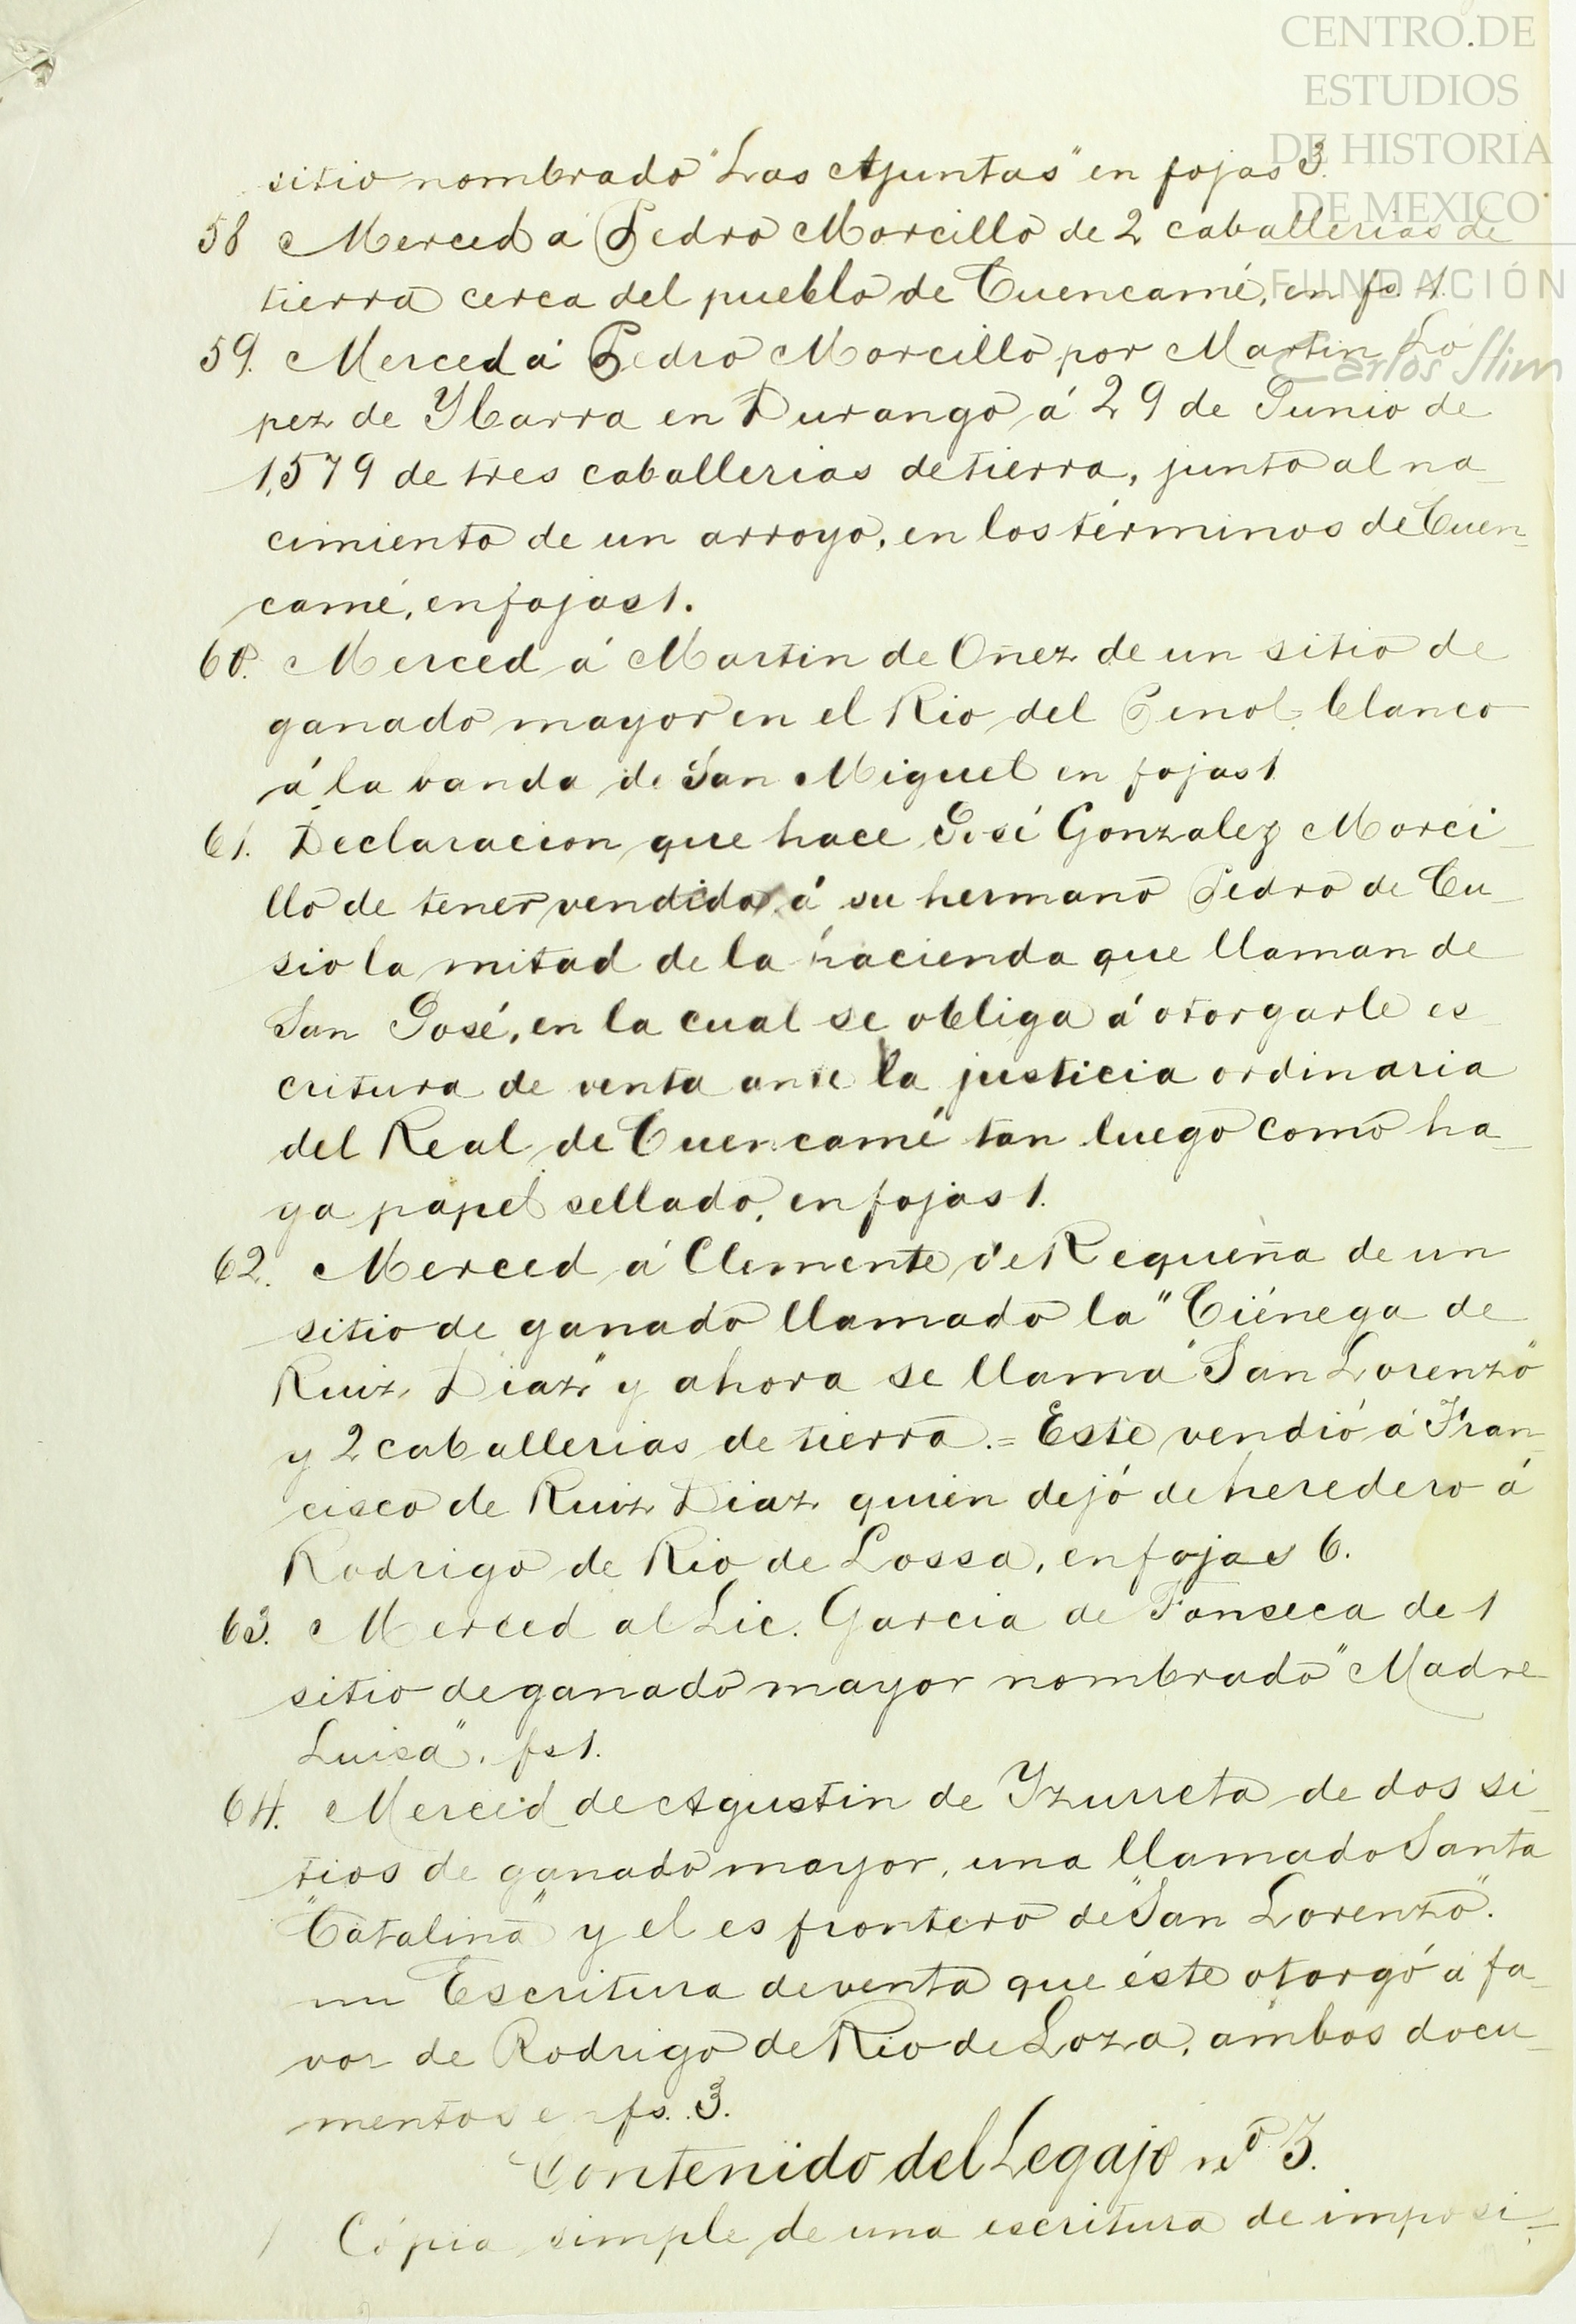 CENTRO DE
ESTUDIOS
DE HISTORIA
DE MEXICO
FUNDACIÓN
Carlos Slim
sitio nombrado "Las Ajuntas" en fojas 3.
58 Merced a Pedro Morcillo de 2 caballerias de
tierra cerca del pueblo de Cuencamé, en fs. 1.
59. Merced á Pedro Morcillo por Martin Lo
pez de Ybarra en Durango á 29 de Junio de
1,579 de tres caballerias de tierra, junto al na_
cimiento de un arroyo, en los términos de Cuen_
camé, en fojas 1.
60. Merced á Martin de Oñez de un sitio de
ganado mayor en el Rio del Penol blanco
á la banda de San Miguel en fojas 1
61. Declaracion que hace José Gonzalez Morci_
llo de tener vendido á su hermano Pedro de Cu_
sio la mitad de la hacienda que llaman de
San José, en la cual se obliga á otorgarle es_
critura de venta ante la justicia ordinaria
del Real de Cuencamé tan luego como ha_
ya papel sellado, en fojas 1.
62. Merced á Clemente de Requeña de un
sitio de ganado llamado la "Ciénega de
Ruiz Diaz" y ahora se llama "San Lorenzo"
y 2 caballerias de tierra.= Este vendió á Fran_
cisco de Ruiz Diaz quien dejó de heredero á
Rodrigo de Rio de Lossa, en fojas 6.
63. Merced al Lic. Garcia de Fonseca de 1
sitio de ganado mayor nombrado "Madre
Luisa". fs 1.
64. Merced de Agustin de Yzurreta de dos si_
tios de ganado mayor, una llamado Santa
"Catalina" y el es frontero de "San Lorenzo".
un Escritura de venta que éste otorgó á fa_
vor de Rodrigo de Rio de Loza, ambos docu_
mentos en fs. 3.
Contenido del Legajo nº 3.
1 Cópia simple de una escritura de imposi_